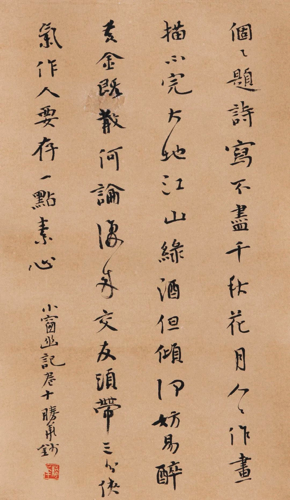 個〻題詩寫不盡千秋花月人〻作畫
描不完大地江山綠酒但傾何妨易醉
黃金既散何論復來交友須帶三分俠
氣作人要存一點素心
小窗幽記